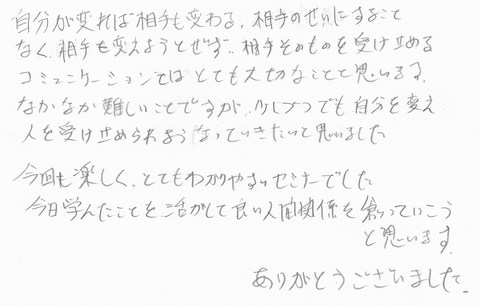 自分が変れば相手も変わる。相手のせいにすること
なく、相手を変えようとせず、相手そのものを受け止める
コミュニケーションではとても大切なことと思います。
なかなか難しいことですが、少しづつでも自分を変え
人を受け止められるようなっていきたいと思いました
今回も楽しく、とてもわかりやすいセミナーでした
今日学んだことを活かして良い人間関係を創っていこう
と思います。
ありがとうございました。